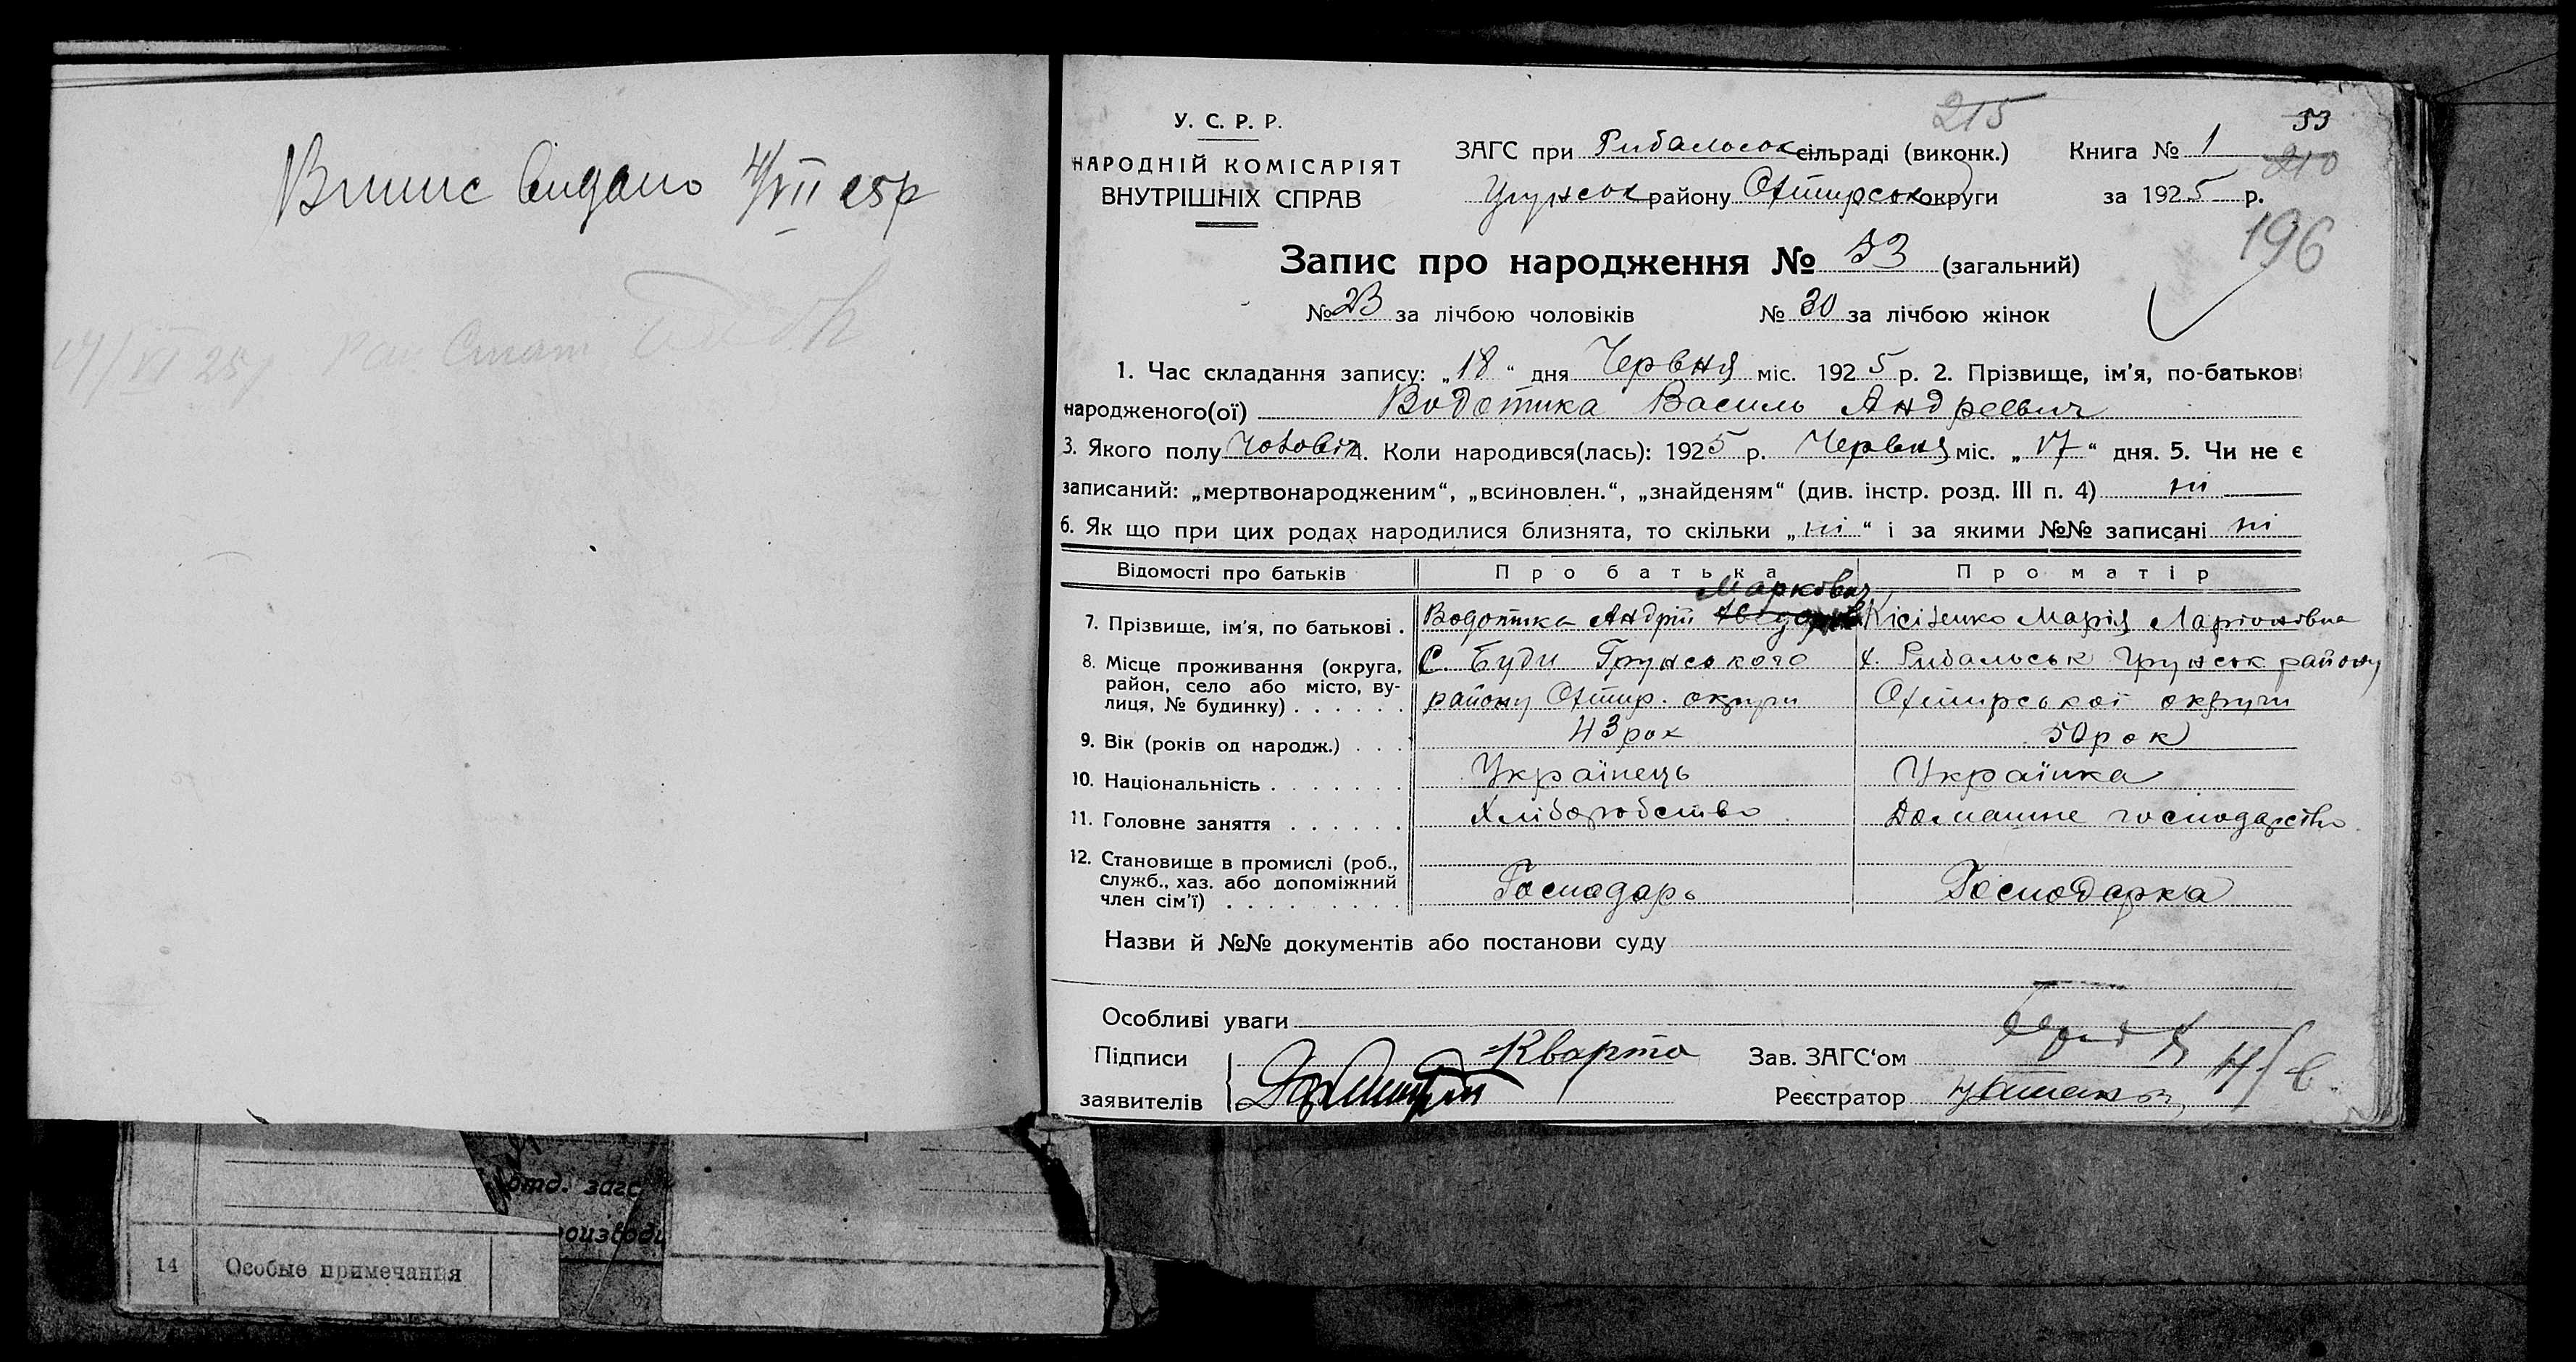 Випис видано 4/VII 25р
19/VI 25р Рай Стат
У. С. Р. Р.
НАРОДНІЙ КОМІСАРІЯТ
ВНУТРІШНІХ СПРАВ
215
53
ЗАГС при Рибальськ сільраді (виконк.) Книга № 1
210
Грунськ району Охтирськ округи за 1925 р.
196
Запис про народження № 53 (загальний)
№ 23 за лічбою чоловіків № 30 за лічбою жінок
1. Час складання запису: „18“ дня Червня міс. 1925 р. 2. Прізвище, ім'я, по-батькові
народженого(ої) Водотика Василь Андреевич
3. Якого полу Чоловіч 4. Коли народився(лась): 1925 р. Червня міс. „17“ дня. 5. Чи не є
записаний: „мертвонародженим“, „всиновлен.“, „знайденям“ (див. інстр. розд. III п. 4) ні
6. Як що при цих родах народилися близнята, то скільки „ні“ і за якими №№ записані ні
Відомості про батьків Про батька Про матір
Маркович
7. Прізвище, ім'я, по батькові . Водотика Андрій Кісіленко Марія Ларіоновна
8. Місце проживання (округа, район, село або місто, вулиця, № будинку) . . . . . .
С. Буди Грунського
району Охтир. округи
х. Рибальськ Грунськ району
Охтирської округи
9. Вік (років од народж.) . . . 43 рок 50 рок
10. Національність . . . . . . . Українець Українка
11. Головне заняття . . . . . . Хліборобство Домашне господарство
12. Становище в промислі (роб.,
служб., хаз. або допоміжний
член сім'ї) . . . . . . . . . Господарь Господарка
Назви й №№ документів або постанови суду
Особливі уваги
Підписи Кварта Зав. ЗАГС'ом
заявителів Реєстратор
отд. загс
14 Особые примечания